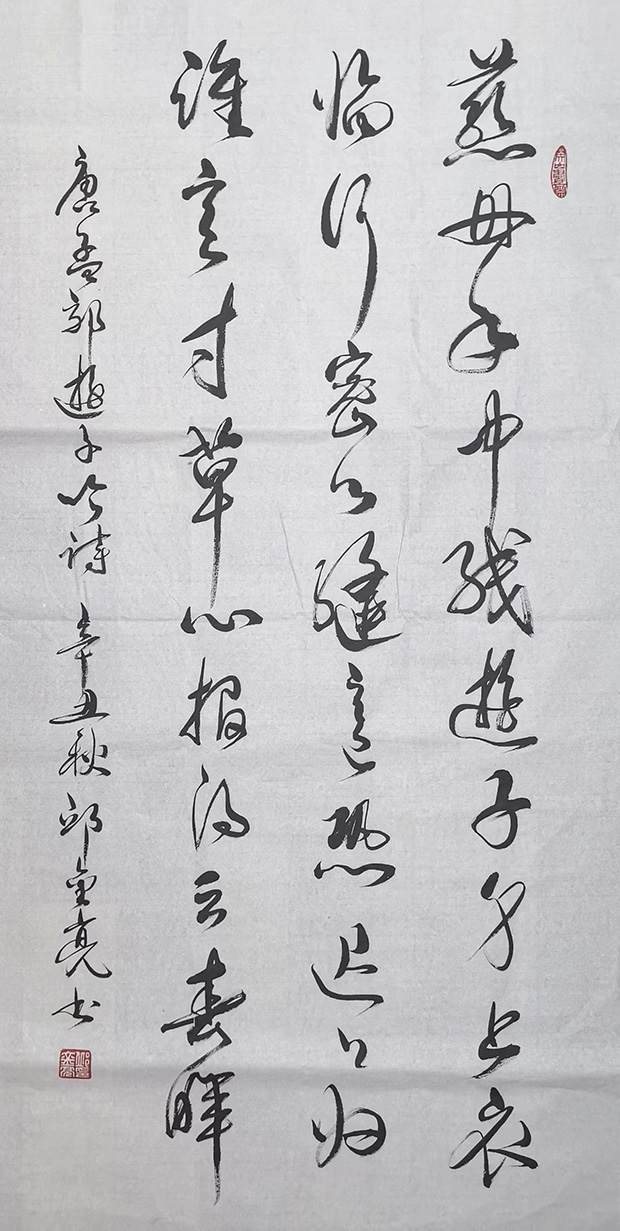 慈母手中线遊子身上衣
临行密々缝意恐迟々归
谁言寸草心报得三春晖
唐孟郊遊子吟诗 辛丑秋邱金亮书